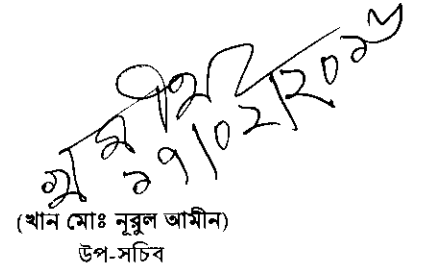 ১৭/০২/২০১৬
(খান মোঃ নূরুল আমীন)
উপ-সচিব